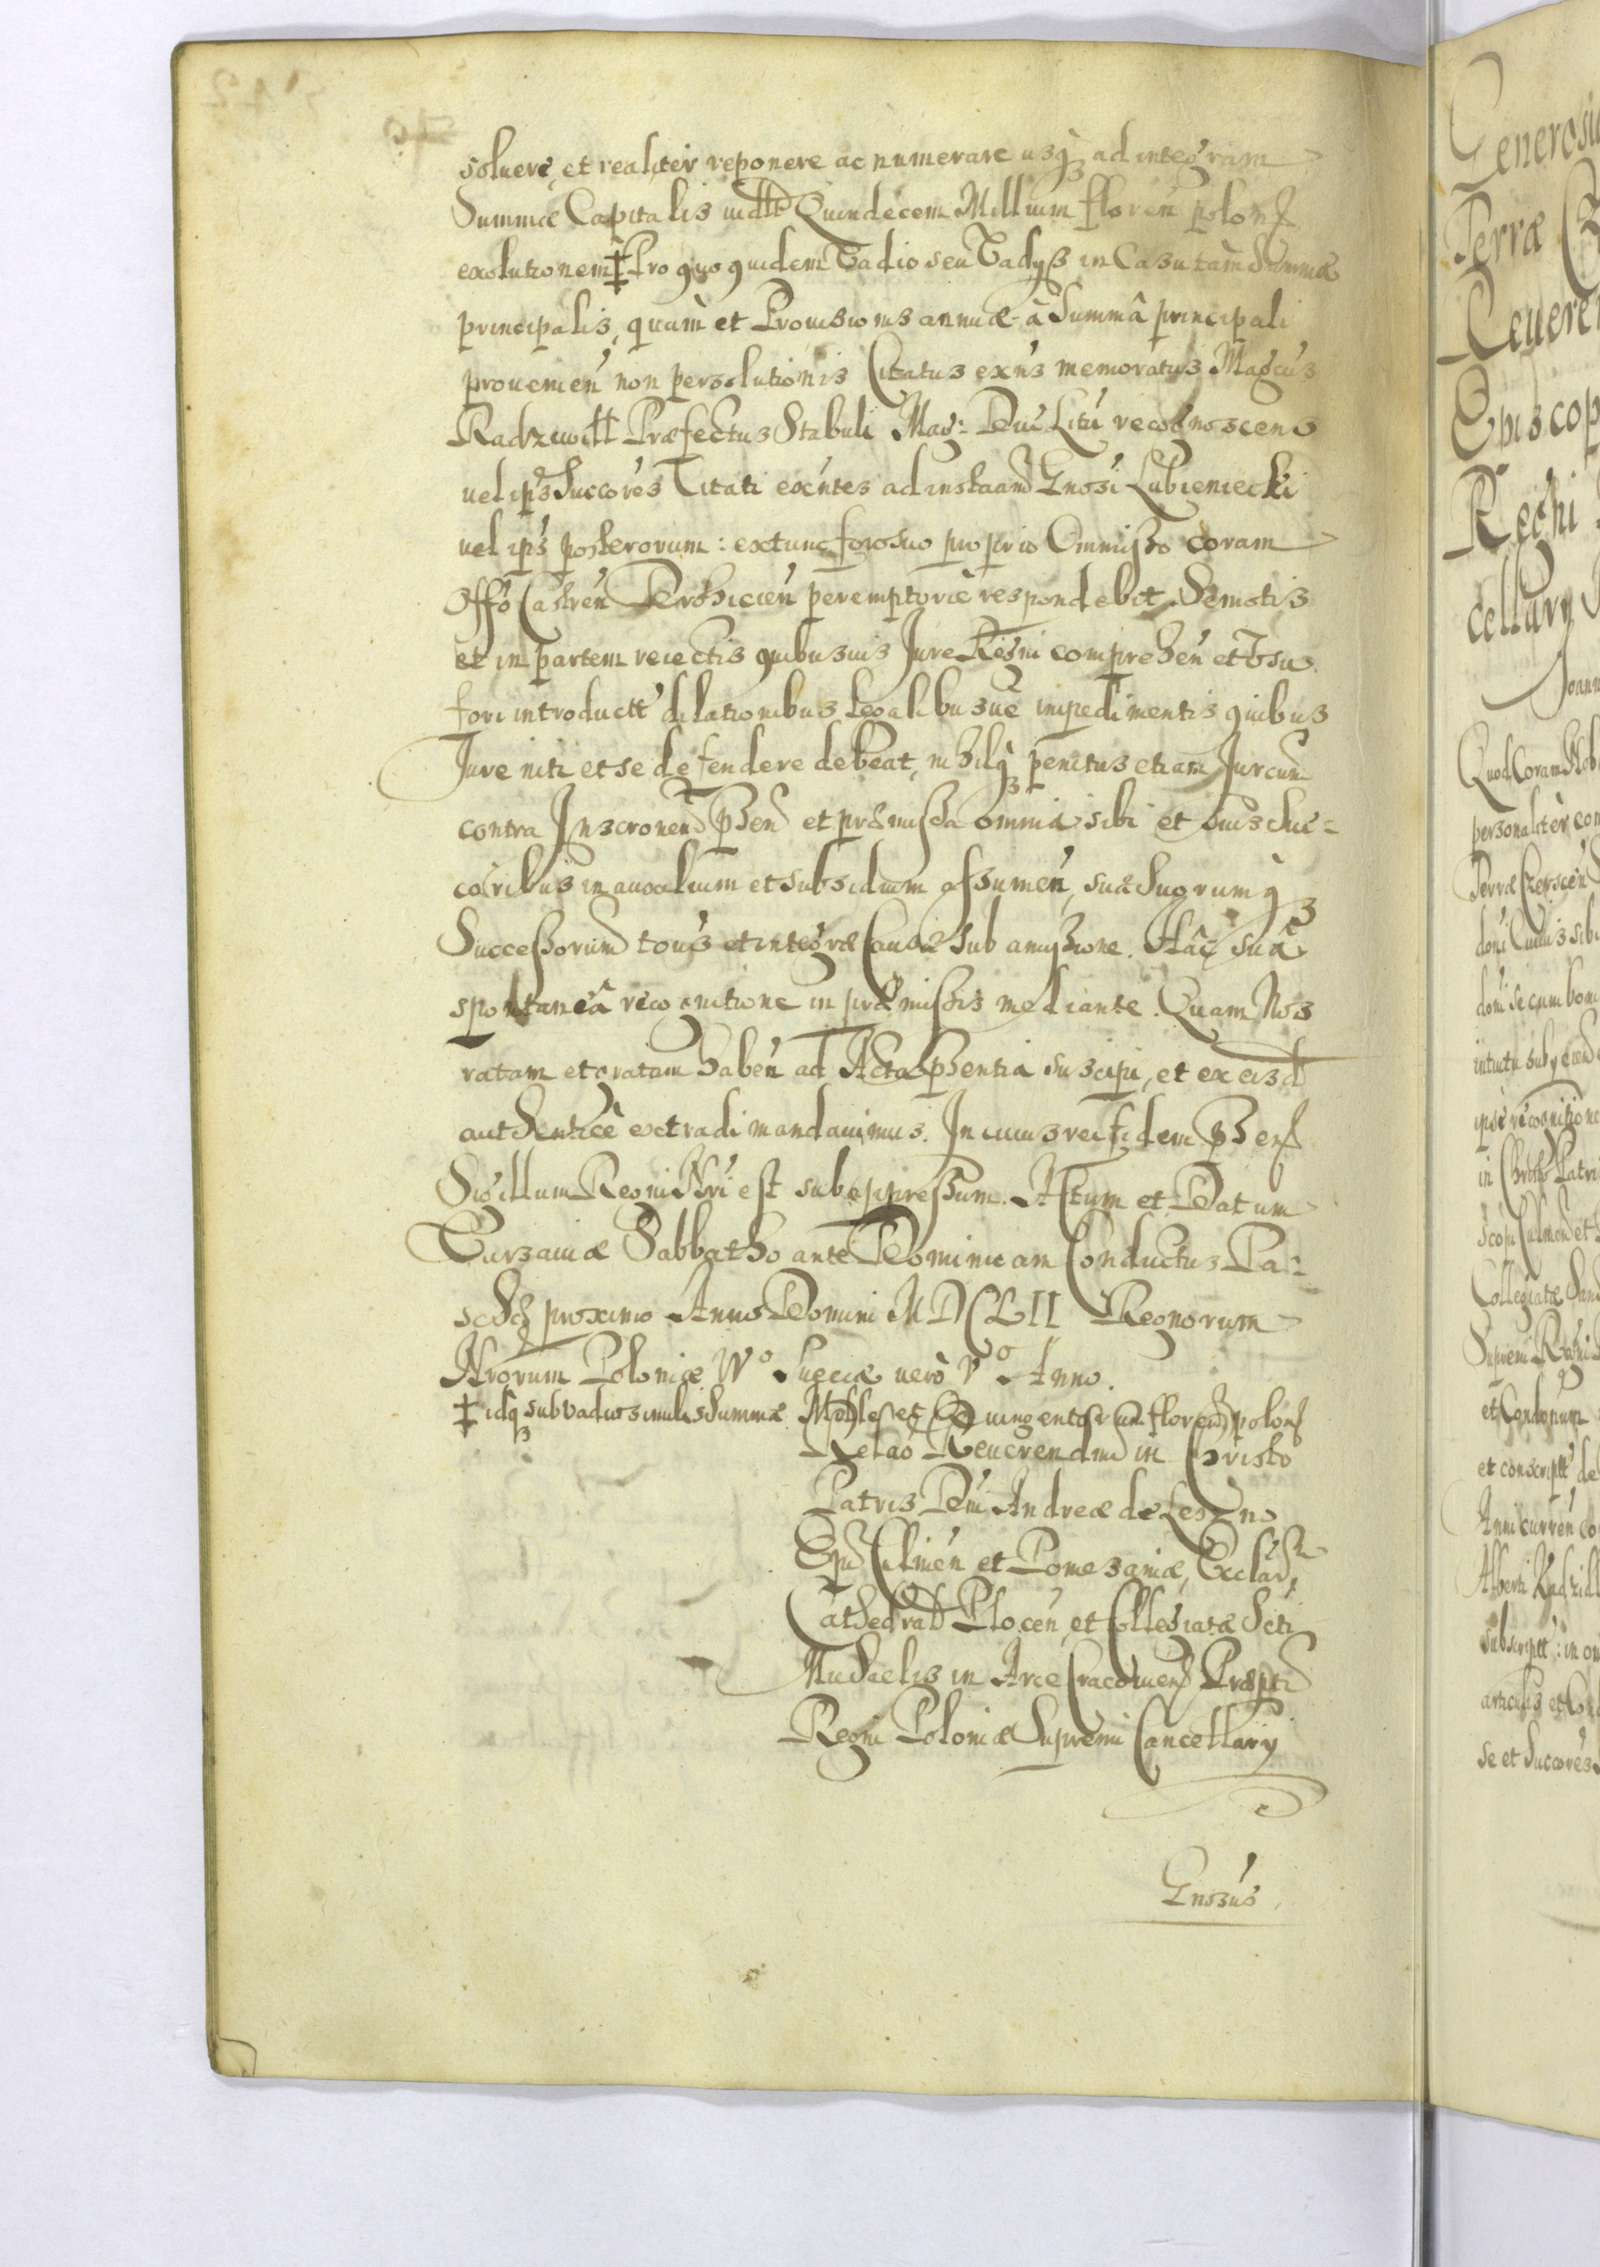 soluere, et realiter reponere ac numerare usq3 ad integram
Summæ Capitalis Quindecem Millium floren polon
exolutionem ‡ Pro quo quidem Vadio seu Vadÿs in Casu tam Summæ
principalis, quàm et Prouisionis annuæ à Summâ principali
prouenien non persolutionis Citatus exñs memoratus Magcus
Radziwill Præfectus Stabuli Mag: Duc Litu recognoscens
uel ips Succores Citati exñtes ad instaam Gnosi Lubieniecki
uel ips posterorum: extunc foro suo proprio Omnisso coram
Offo Castren peremptoriè respondebit. Semotis
et in partem reiectis quibusuis Jure Regni comprehen et Vsu
fori introductt dilationibus Legalibusue impedimentis quibus
Jure niti et se defendere debeat, nihilq3 penitus etiam Jurcum
contra Inscronem pñsen et præmissa omnia sibi et suis Suc=
coribus in auxilium et subsidium assumen, suâ Suorumq3
Successorum totius et integræ Causæ sub amissione. Hâc suâ
spontaneâ recognitione in præmissis mediante. Quam Nos
ratam et gratam haben ad Acta pñsentia suscipi, et ex eisd
authenticè extradi mandauimus. In cuius rei fidem pñsen
Sigillum Regni Nri est subappressum. Actum et Datum
Varsauiæ Sabbatho ante Dominicam Conductus Pa=
schæ proximo Anno Domini MDCLII Regnorum
Nrorum Poloniæ IVo Sueciæ uerò Vo Anno.
‡ idq3 sub vadio similis Summæ Mille et Quingentorum floren polon
Relao Reuerendmi in Christo
Patris Dni Andreæ de Leszno
Epi Culmen et Pomesaniæ,
Cathedral Plocen, et Collegiatæ Scti
Michaelis in Arce Cracouien Præpti
Regni Poloniæ Supremi Cancellarÿ
Gnosus
Generosu
Terræ
Reueren
Episcop
Regni
cellarÿ
Joann
Quod Coram
personaliter con
Terræ Czerscen
domi Cuius sibi
domi se cum boni
ipse recognitione
in Christo Patri
Collegiatæ
Supremi Regni
et Condonum
et conscriptt de
Anni curren
Alberti Radziill
subscriptt: in om
articulis et Con
se et Succores